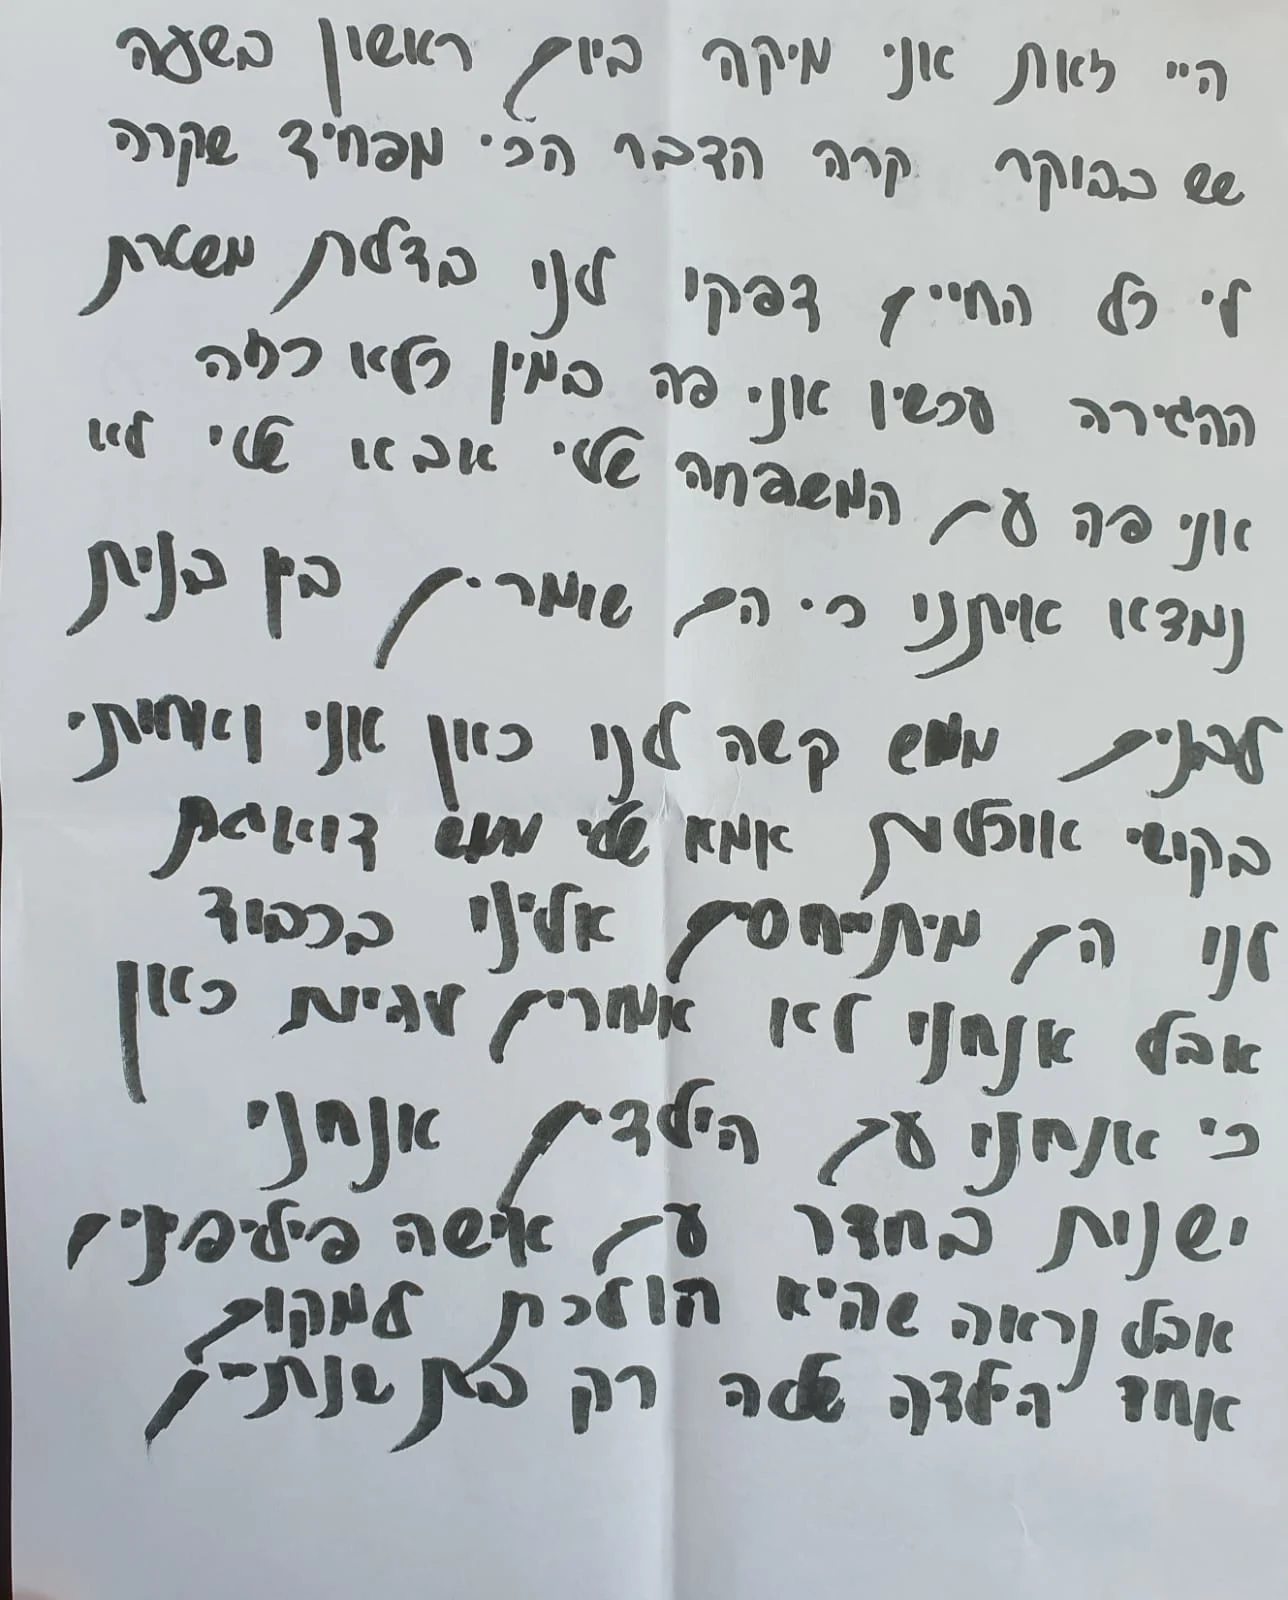 היי זאת אני מיקה ביום ראשון בשעה
שש בבוקר קרה הדבר הכי מפחיד שקרה
לי כל החיים דפקו לנו בדלת משטרת
ההגירה עכשיו אני פה במין כלא כזה
אני פה עם המשפחה שלי אבא שלי לא
נמצא איתנו כי הם שומרים בין בנים
לבנות ממש קשה לנו כאן אני ואחותי
בקושי אוכלות אמא שלי ממש דואגת
לנו הם מיתייחסים אלינו בכבוד
אבל אנחנו לא אמורים להיות כאן
כי אנחנו עם הילדים אנחנו
ישנות בחדר עם אישה פיליפינית
אבל נראה שהיא הולכת למקום
אחד הילדה שלה רק בת שנתיים